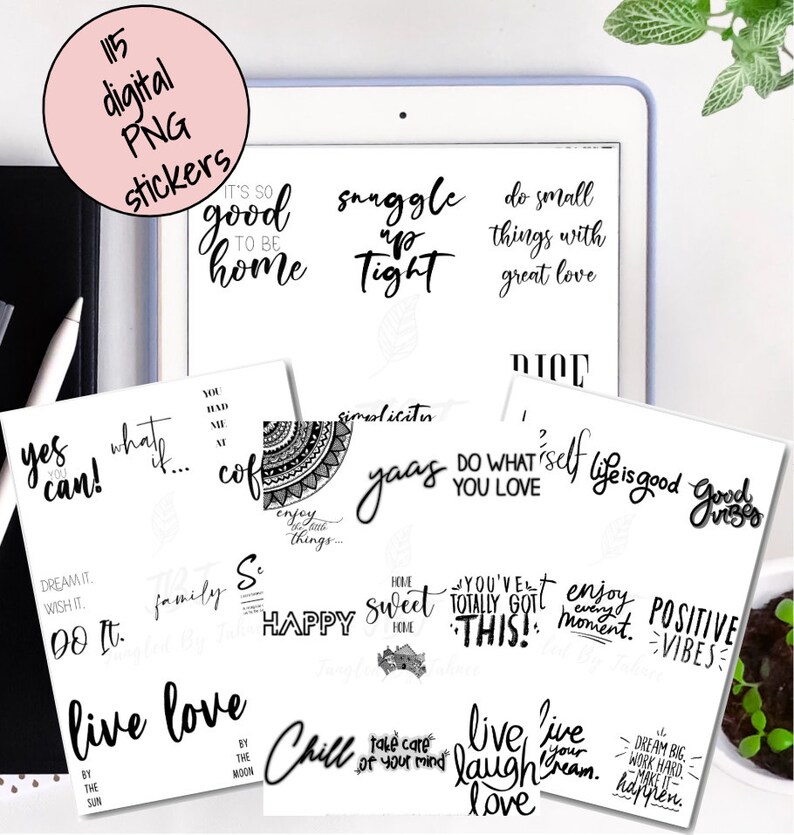 115
digital
PNG
stickers
IT'S SO
good
TO BE
home
snuggle
up
Tight
do small
things with
great love
simplicity
yes
YOU
can!
what
if...
YOU
HAD
ME
AT
DREAM IT.
WISH IT.
DO It.
family
live love
BY
THE
SUN
BY
THE
MOON
enjoy
the little
things...
yaas
DO WHAT
YOU LOVE
HAPPY
HOME
sweet
HOME
YOU'VE
TOTALLY GOT
THIS!
Chill
take care
of your mind
live
laugh
love
life is good
Good
vibes
enjoy
every
moment.
POSITIVE
VIBES
live
your
dream.
DREAM BIG,
WORK HARD,
MAKE IT
happen.